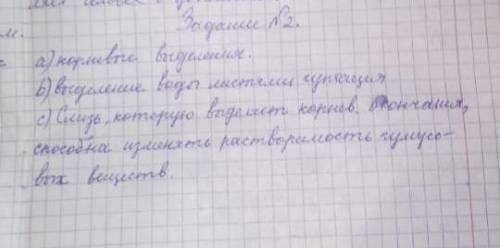 Задание №2.
м.
а) корневые выделения.
b) выделение воды листьями, гуттация
c) Слизь, которую выделяет корнев. окончания,
способна изменять растворимость гумусо-
вых веществ.